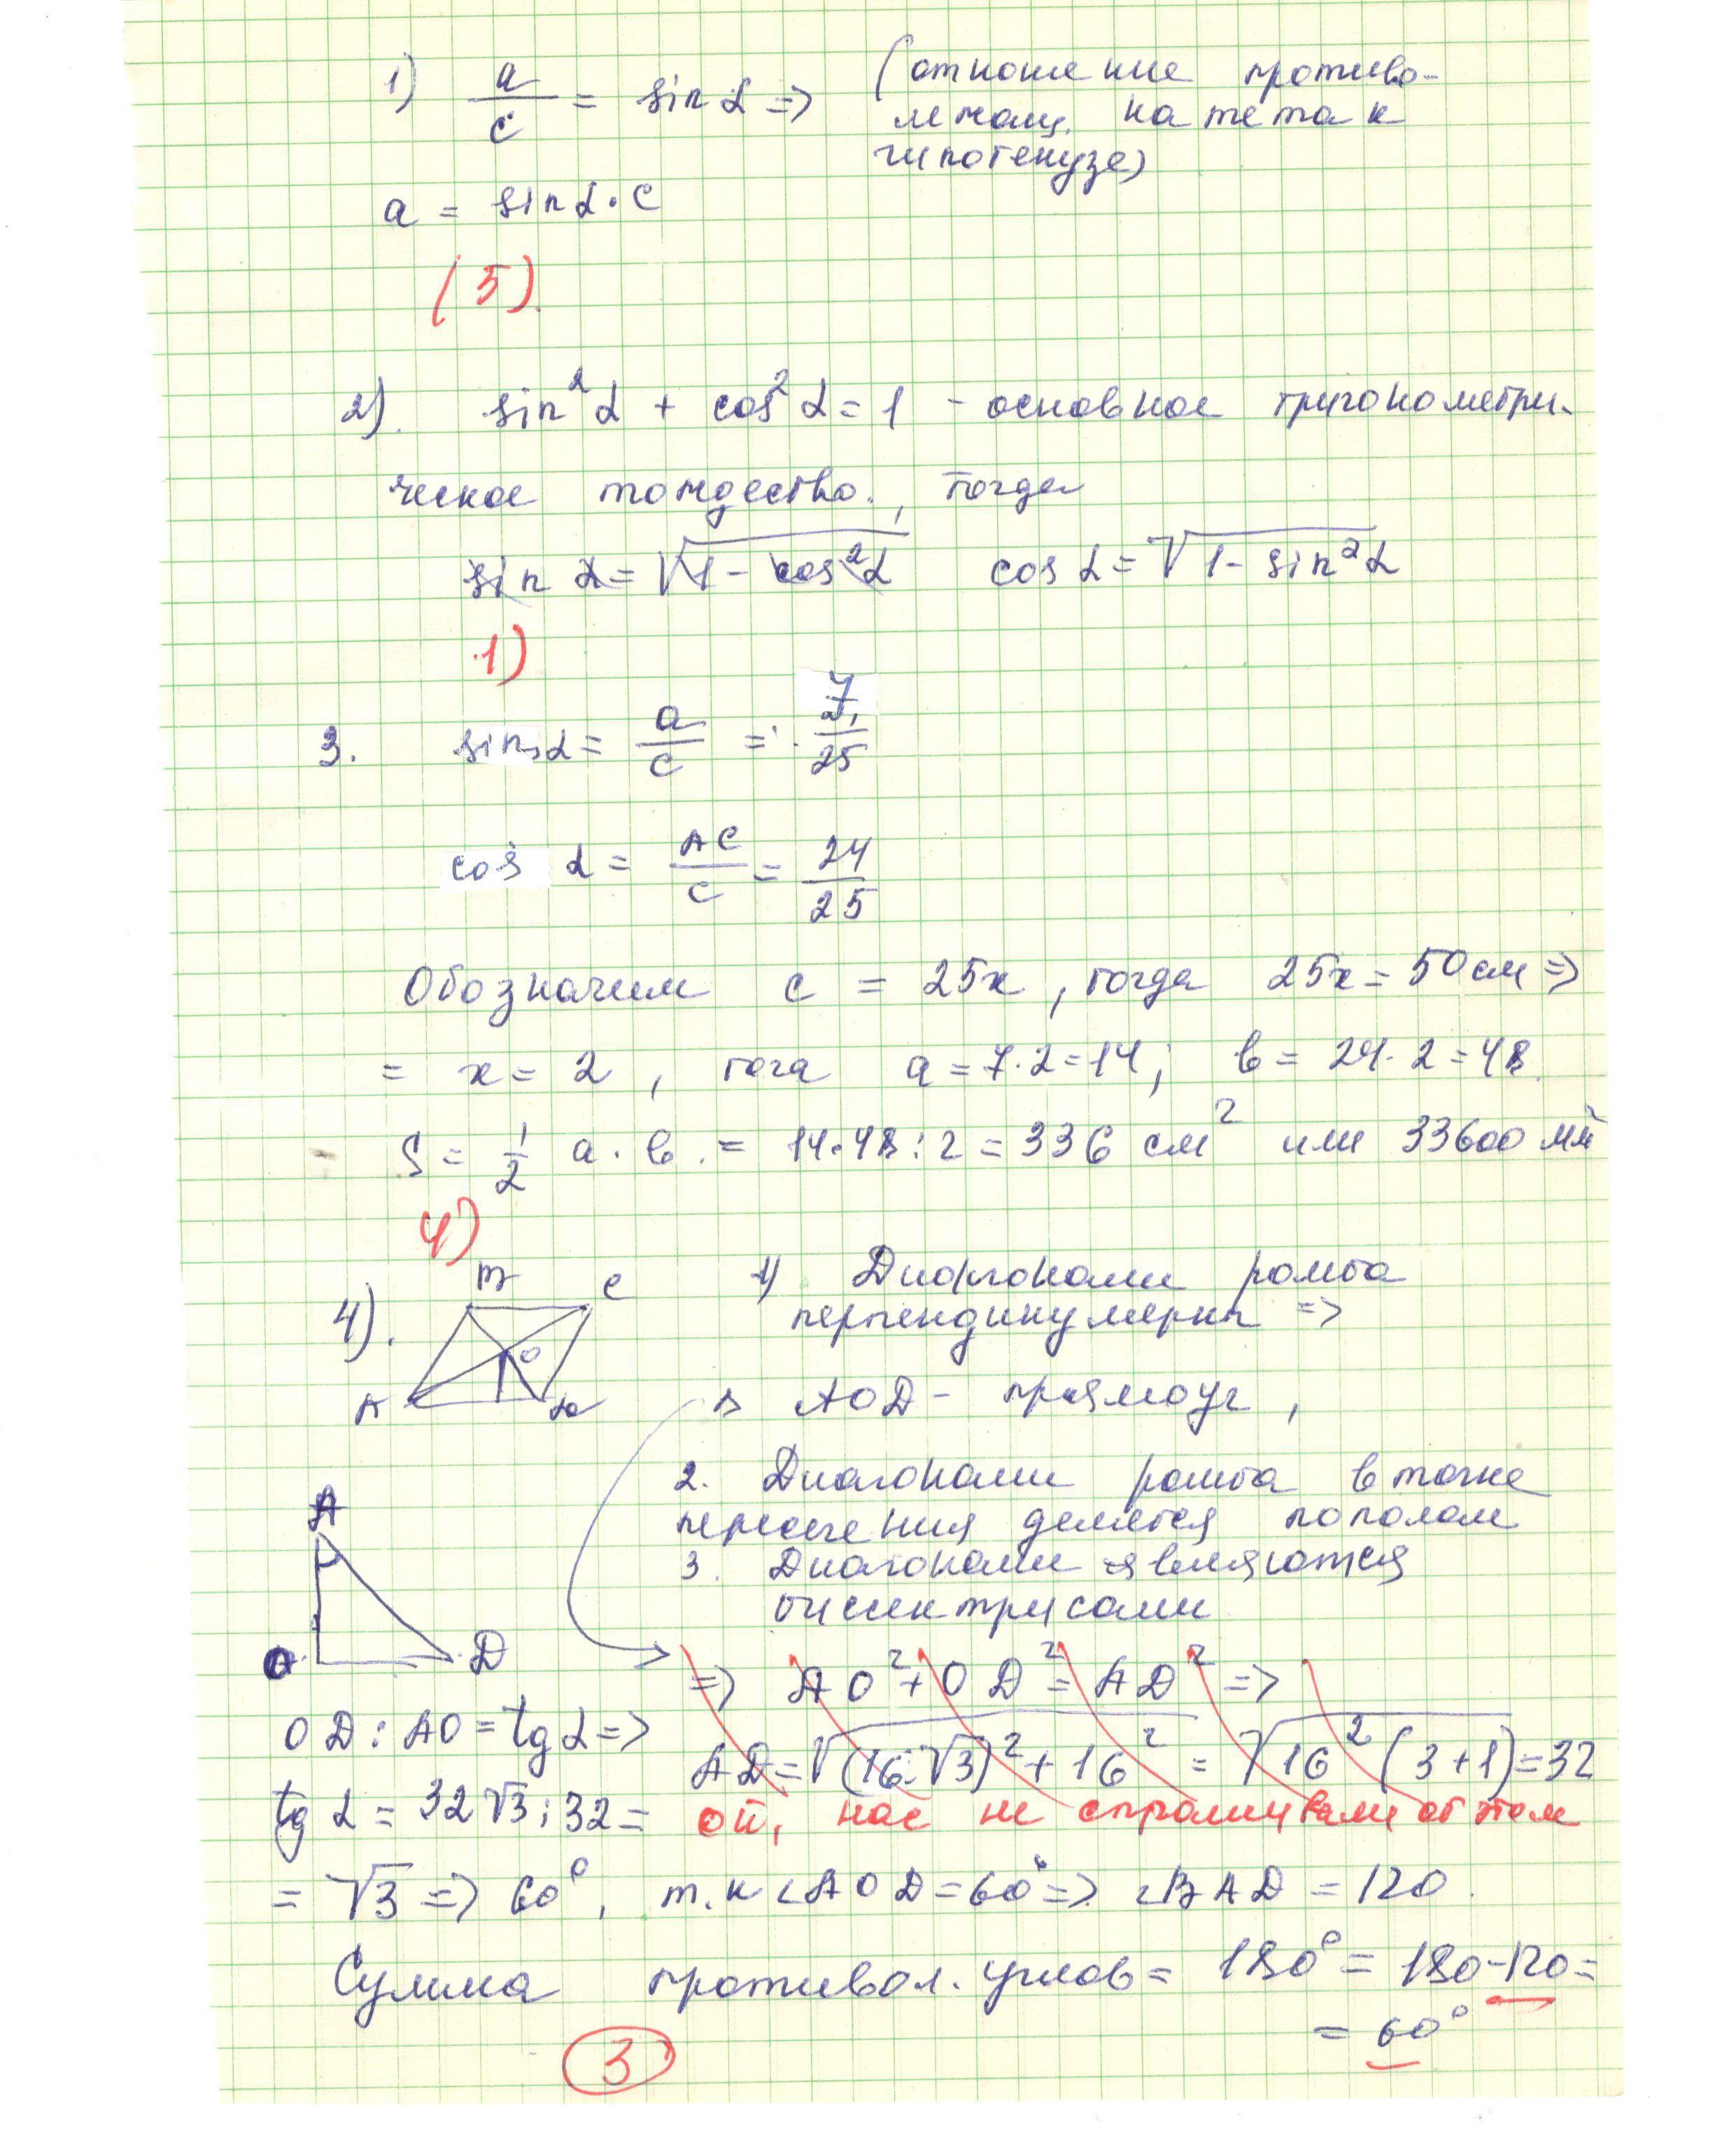 1) a/c = sin α => (отношение противо-
лежащ. катета к
гипотенузе)
a = sin α · c
(5)
2). sin²α + cos²α = 1 - основное тригонометри-
ческое тождество, тогда
sin α = √(1 - cos²α) cos α = √(1 - sin²α)
1)
3. sin α = a/c = 7/25
cos α = AC/c = 24/25
Обозначим c = 25x, тогда 25x = 50 см =>
= x = 2, тога a = 7·2 = 14; в = 24·2 = 48.
S = 1/2 a · в. = 14·48 : 2 = 336 см² или 33600 мм
4)
4).
B C
O
A D
1) Диагонали ромба
перпендикулярны =>
Δ AOD - прямоуг,
2. Диагонали ромба в точке
пересечения делятся пополам
3. Диагонали являются
биссектрисами
A
O D
=> AO² + OD² = AD² =>
AD = √((16·√3)² + 16²) = √(16²(3+1)) = 32
ой, нас не спрашивали об этом
OD : AO = tg α =>
tg α = 32√3 : 32 =
= √3 => 60°, т.к ∠AOD = 60° => ∠BAD = 120.
Сумма противол. углов = 180° = 180-120 =
= 60°
3